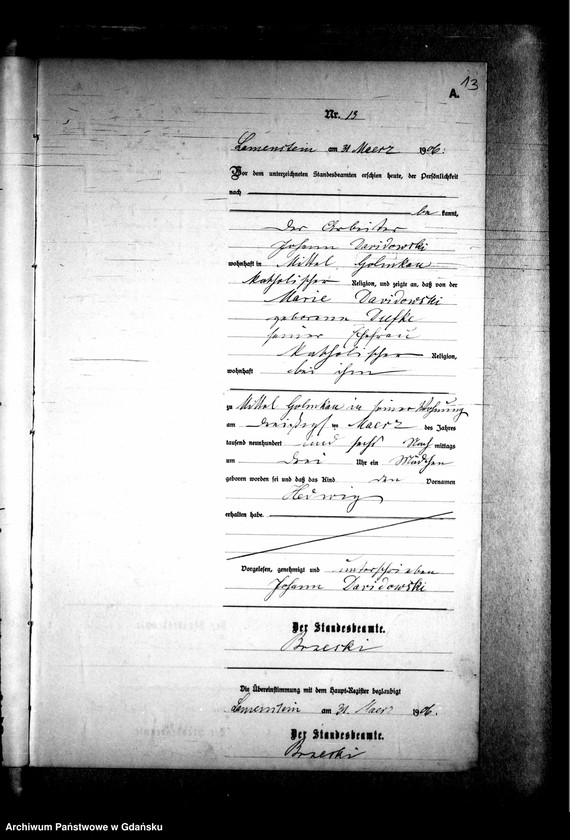 13
A.
Nr. 13
Lamenstein am 31 Maerz 1906.
Vor dem unterzeichneten Standesbeamten erschien heute, der Persönlichkeit
nach
be kannt,
der Arbeiter
Johann Davidowski
wohnhaft in Mittel Golmkau
katholischer Religion, und zeigte an, daß von der
Marie Davidowski
geborenen
seiner Ehefrau
katholischer Religion,
wohnhaft bei ihm
zu Mittel Golmkau in seiner Wohnung
am dreißigsten Maerz des Jahres
tausend neunhundert und sechs Nach mittags
um drei Uhr ein Mädchen
geboren worden sei und daß das Kind den Vornamen
Hedwig
erhalten habe.
Vorgelesen, genehmigt und unterschrieben
Johann Davidowski
Der Standesbeamte.
Brzeski
Die Übereinstimmung mit dem Haupt-Register beglaubigt
Lamenstein am 31. Maerz 1906.
Der Standesbeamte.
Brzeski
Archiwum Państwowe w Gdańsku